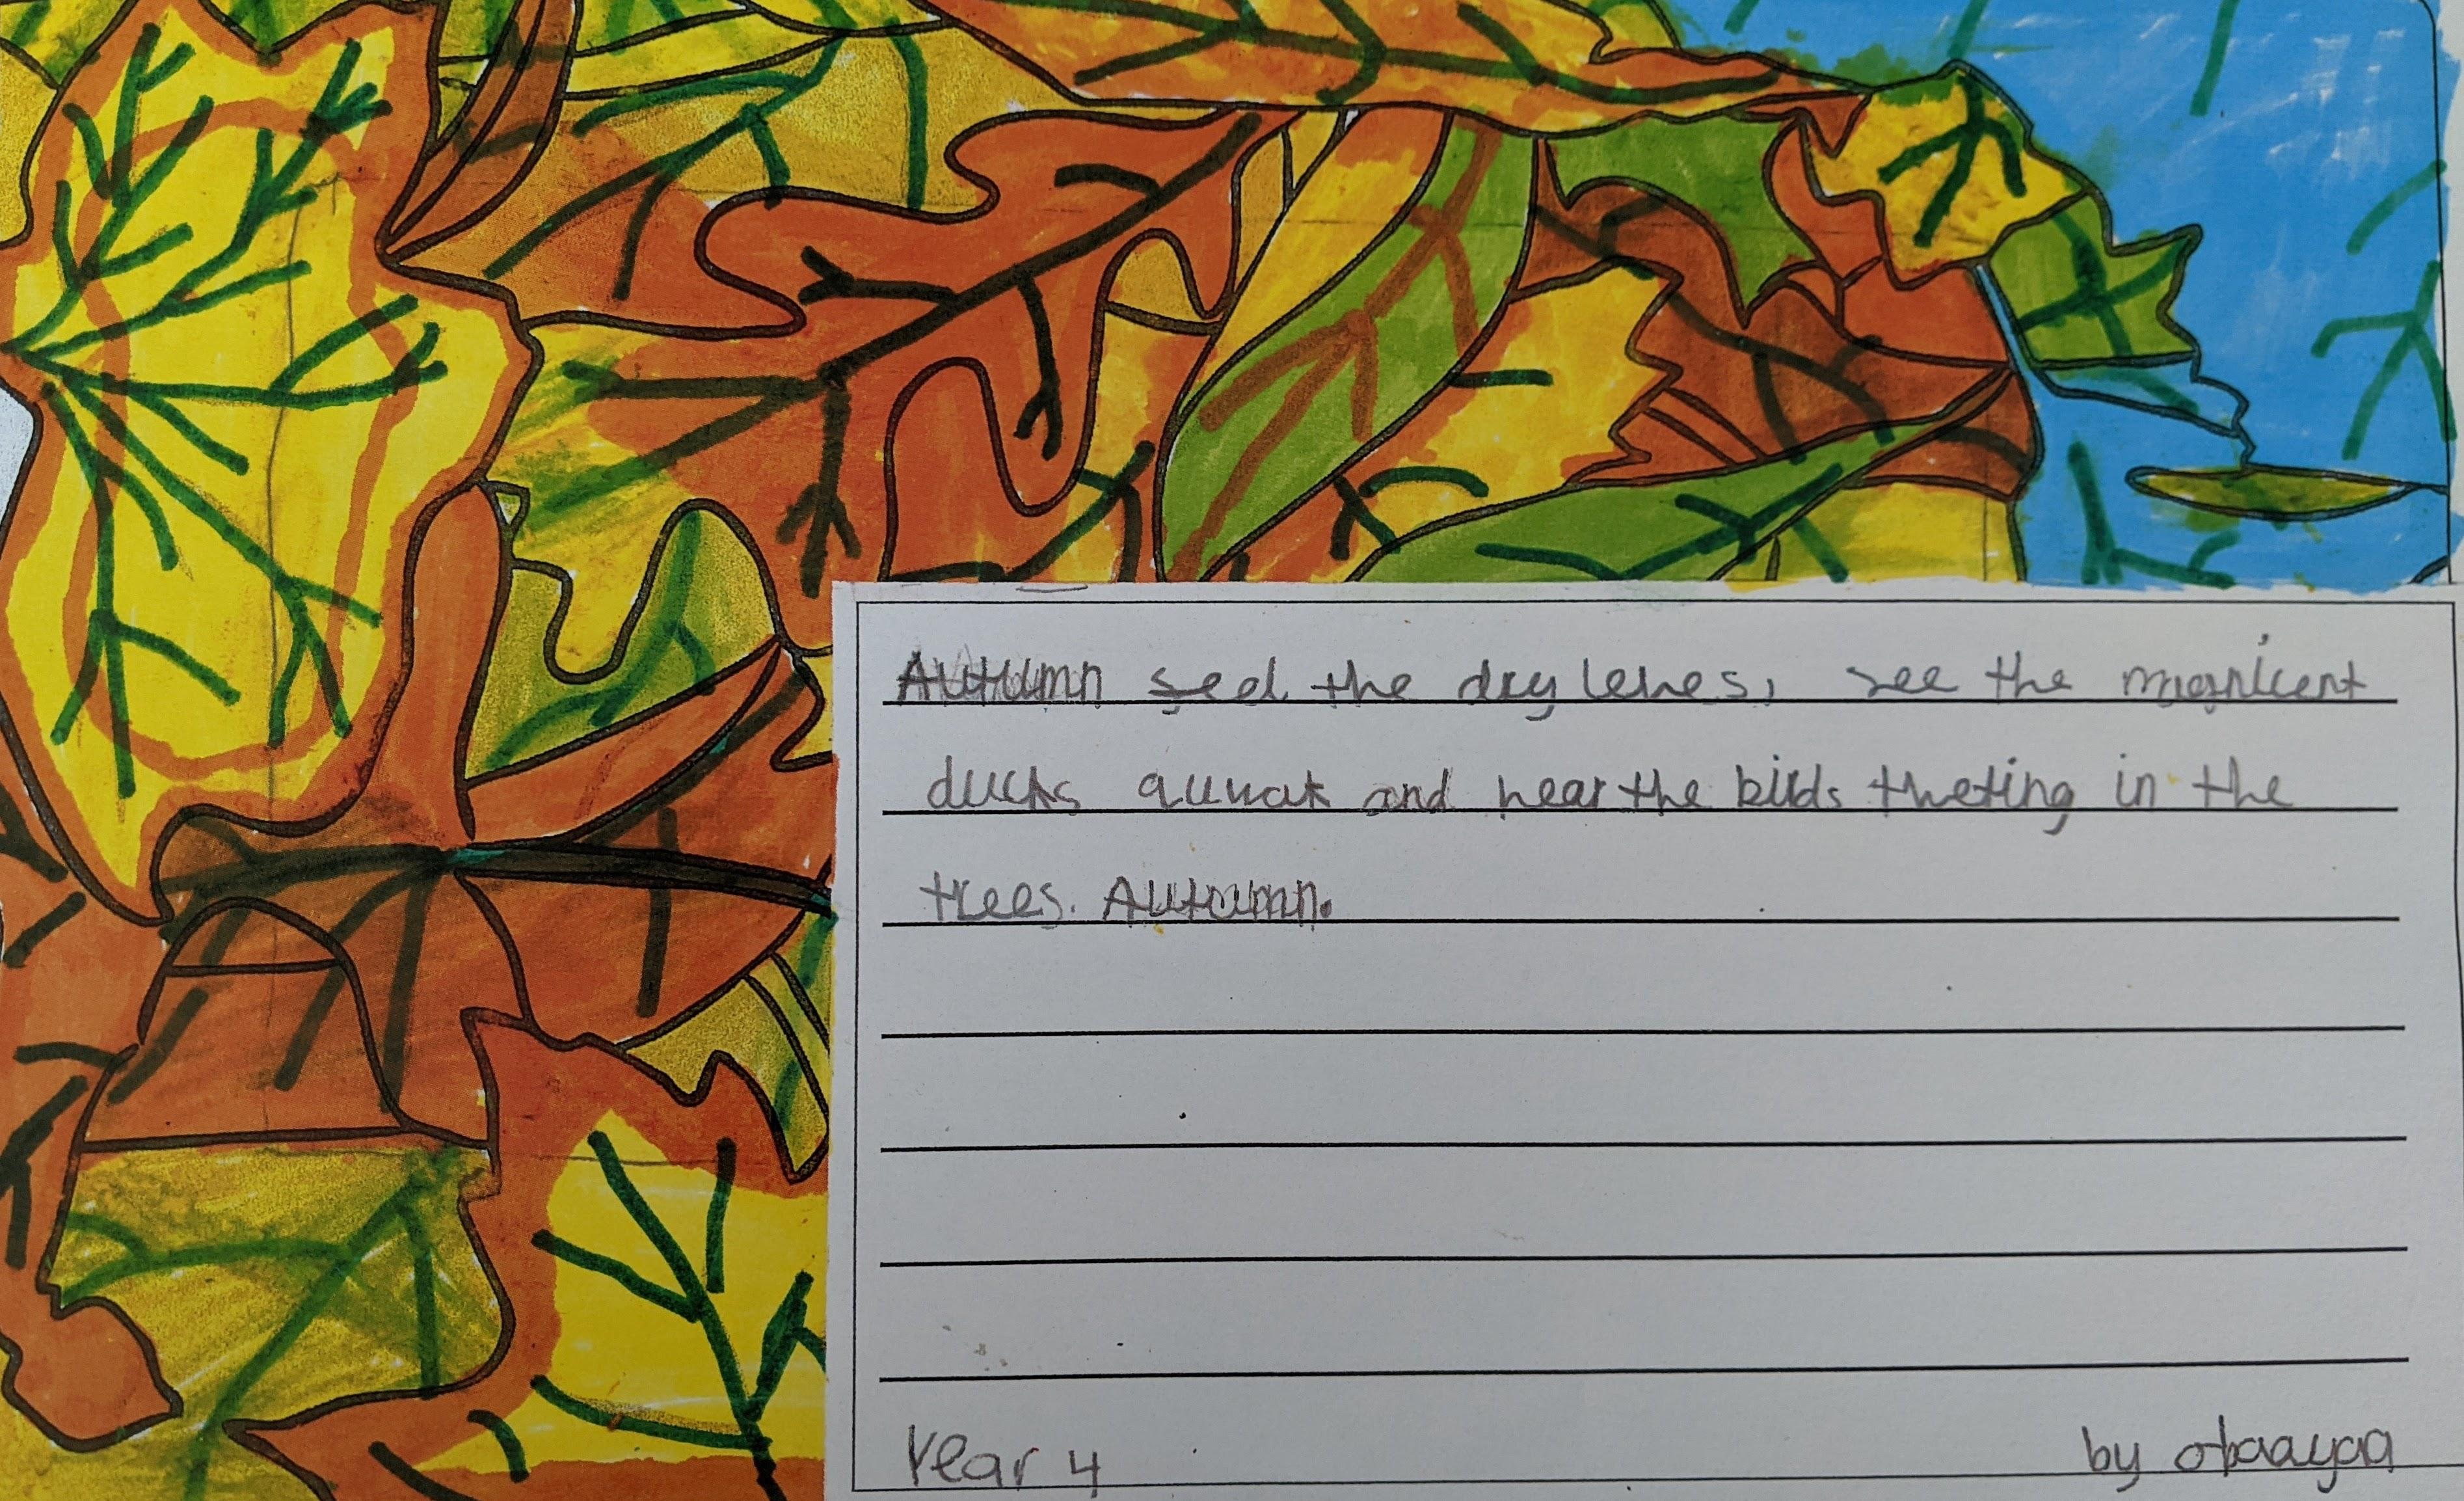 Autumn seel the dry leves, see the magnicent
ducks quwak and hear the birds thweting in the
trees. Autumn.
Year 4
by obaayaa